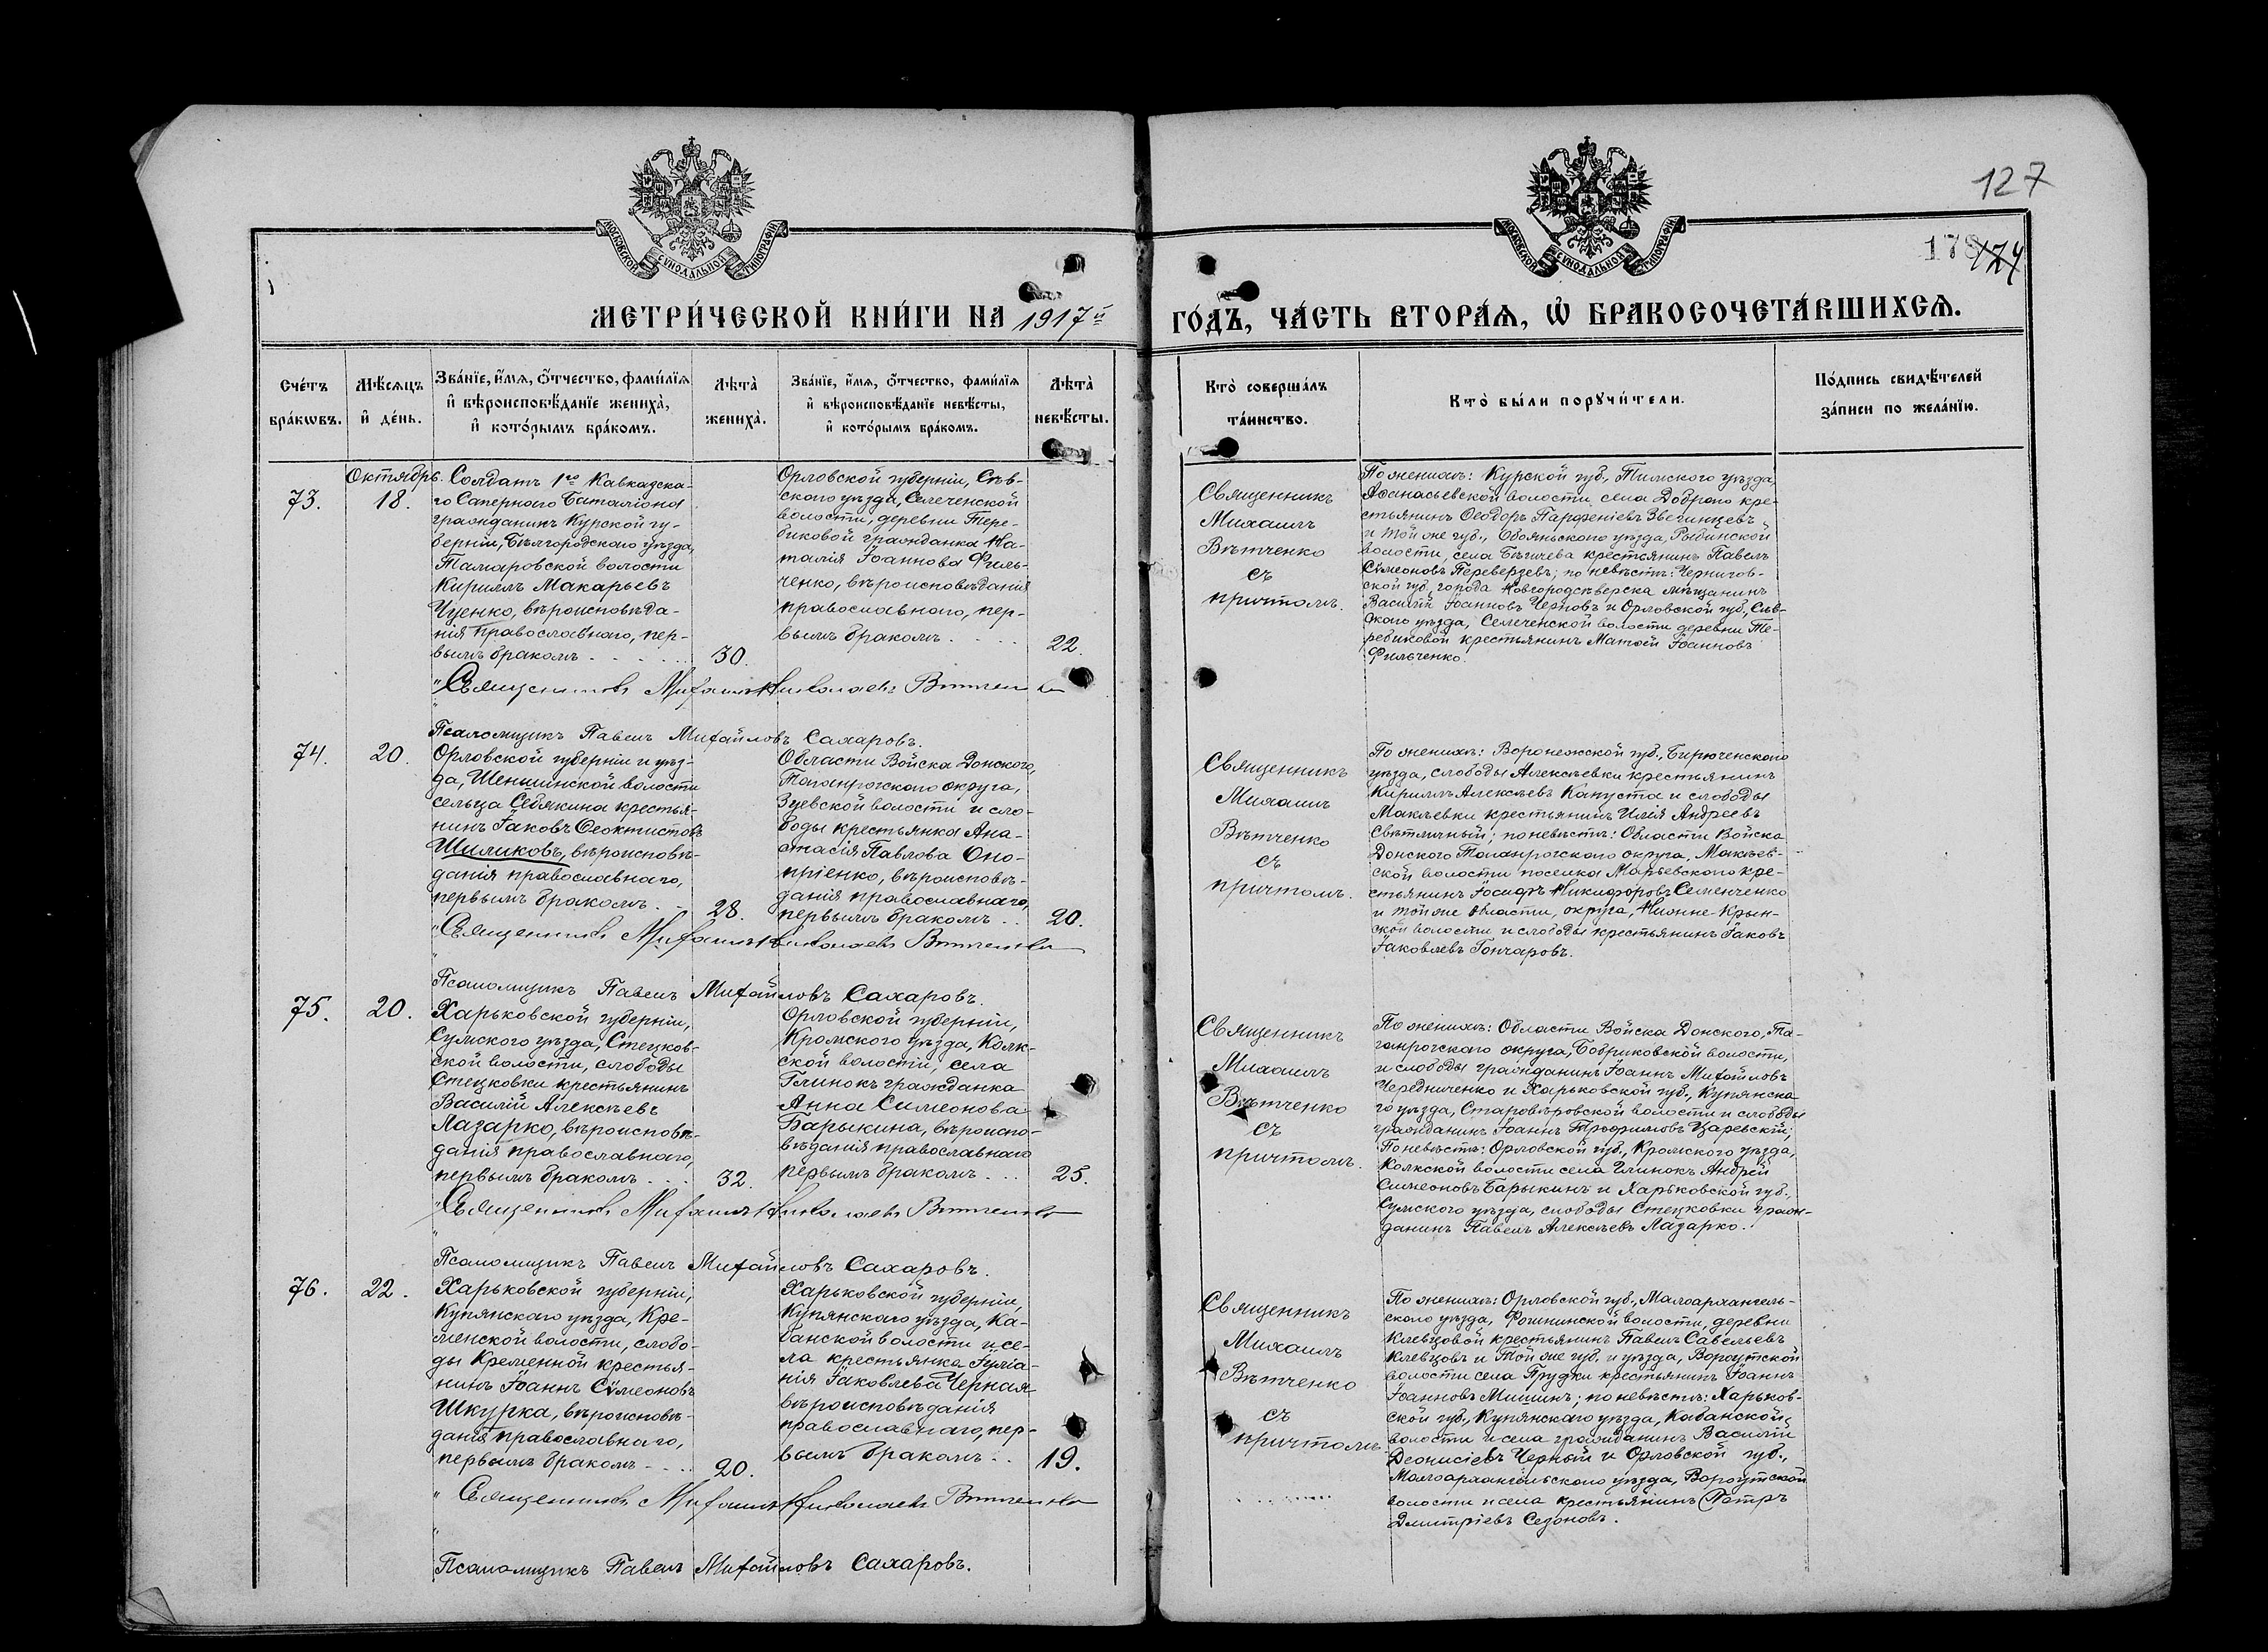 127
178 124
МОСКОВСКОЙ СѴНОДАЛЬНОЙ ТИПОГРАФІИ
МОСКОВСКОЙ СѴНОДАЛЬНОЙ ТИПОГРАФІИ
МЕТРИ́ЧЕСКОЙ КНИ́ГИ НА 1917й ГО́ДЪ, ЧА́СТЬ ВТОРА́Ѧ, Ѡ҆ БРАКОСОЧЕТА́ВШИХСѦ.
Сче́тъ бра́кѡвъ.
Мѣ́сѧцъ и҆ де́нь.
Зва́нїе, и҆́мѧ, о҆́тчество, фами́лїѧ и҆ вѣроисповѣ́данїе жениха̀, и҆ кото́рымъ бра́комъ.
Лѣта̀ жениха̀.
Зва́нїе, и҆́мѧ, о҆́тчество, фами́лїѧ и҆ вѣроисповѣ́данїе невѣ́сты, и҆ кото́рымъ бра́комъ.
Лѣта̀ невѣ́сты.
Кто̀ соверша́лъ та́инство.
Кто̀ бы́ли порꙋчи́тели.
По́дпись свидѣ́телей за́писи по жела́нїю.
73.
Октябрь.
18.
Солдатъ 1го Кавказска-
го Сапернаго Баталіона
гражданинъ Курской гу-
берніи, Бѣлгородскаго уѣзда,
Тамаровской волости
Кириллъ Макарьевъ
Чуенко, вѣроисповѣда-
нія православнаго, пер-
вымъ бракомъ
30.
Орловской губерніи, Сѣв-
скаго уѣзда, Селеченской
волости, деревни Тере-
биковой гражданка На-
талія Іоаннова Филь-
ченко, вѣроисповѣданія
православнаго, пер-
вымъ бракомъ
22.
Священникъ
Михаилъ
Вѣтченко
съ
причтомъ.
По женихѣ: Курской губ., Тимскаго уѣзда,
Аѳанасьевской волости села Добраго кре-
стьянинъ Ѳеодоръ Парѳеніевъ Звегинцевъ
и той же губ., Обоянскаго уѣзда, Рыбинской
волости, села Бѣгичева крестьянинъ Павелъ
Сѵмеоновъ Переверзевъ; по невѣстѣ: Чернигов-
ской губ. города Новгородсѣверска мѣщанинъ
Василій Іоанновъ Черновъ и Орловской губ., Сѣв-
скаго уѣзда, Селеченской волости деревни Те-
ребиковой крестьянинъ Матѳей Іоанновъ
Фильченко.
Священникъ Михаилъ Николаевъ Вѣтченко
Псаломщикъ Павелъ Михайловъ Сахаровъ.
74.
20.
Орловской губерніи и уѣз-
да, Шеншинской волости
сельца Себякина крестья-
нинъ Іаковъ Ѳеоктистовъ
Шиликовъ, вѣроисповѣ-
данія православнаго,
первымъ бракомъ
28.
Области Войска Донскаго,
Таганрогскаго округа,
Зуевской волости и сло-
боды крестьянка Ана-
стасія Павлова Оно-
пріенко, вѣроисповѣ-
данія православнаго,
первымъ бракомъ
20.
Священникъ
Михаилъ
Вѣтченко
съ
причтомъ.
По женихѣ: Воронежской губ., Бирюченскаго
уѣзда, слободы Алексѣевки крестьянинъ
Кириллъ Алексѣевъ Капуста и слободы
Макѣевки крестьянинъ Илія Андреевъ
Свѣтличный; по невѣстѣ: Области Войска
Донскаго Таганрогскаго округа, Макѣев-
ской волости поселка Марьевскаго кре-
стьянинъ Іосифъ Никифоровъ Семенченко
и той же области, округа, Нижне-Крын-
ской волости и слободы крестьянинъ Іаковъ
Іаковлевъ Гончаровъ.
Священникъ Михаилъ Николаевъ Вѣтченко
Псаломщикъ Павелъ Михайловъ Сахаровъ.
75.
20.
Харьковской губерніи,
Сумскаго уѣзда, Стецков-
ской волости, слободы
Стецковки крестьянинъ
Василій Алексѣевъ
Лазарко, вѣроисповѣ-
данія православнаго,
первымъ бракомъ
32.
Орловской губерніи,
Кромскаго уѣзда, Колк-
ской волости, села
Глинокъ гражданка
Анна Симеонова
Барыкина, вѣроиспо-
вѣданія православнаго
первымъ бракомъ
25.
Священникъ
Михаилъ
Вѣтченко
съ
причтомъ.
По женихѣ: Области Войска Донскаго, Та-
ганрогскаго округа, Бобриковской волости,
и слободы гражданинъ Іоаннъ Михайловъ
Чередниченко и Харьковской губ., Купянска
го уѣзда, Старовѣровской волости и слободы
гражданинъ Іоаннъ Трофимовъ Царевскій;
По невѣстѣ: Орловской губ., Кромскаго уѣзда,
Колкской волости села Глинокъ Андрей
Симеоновъ Барыкинъ и Харьковской губ.,
Сумскаго уѣзда, слободы Стецковки граж-
данинъ Павелъ Алексѣевъ Лазарко.
Священникъ Михаилъ Николаевъ Вѣтченко
Псаломщикъ Павелъ Михайловъ Сахаровъ.
76.
22.
Харьковской губерніи,
Купянскаго уѣзда, Кре-
менской волости, слобо-
ды Кременной крестья-
нинъ Іоаннъ Сѵмеоновъ
Шкурка, вѣроисповѣ-
данія православнаго,
первымъ бракомъ
20.
Харьковской губерніи,
Купянскаго уѣзда, Ка-
банской волости и се-
ла крестьянка Іуліа-
нія Іаковлева Черная
вѣроисповѣданія
православнаго, пер-
вымъ бракомъ
19.
Священникъ
Михаилъ
Вѣтченко
съ
причтомъ
По женихѣ: Орловской губ., Малоархангель-
скаго уѣзда, Фошнинской волости, деревни
Клевцовой крестьянинъ Павелъ Савельевъ
Клевцовъ и той же губ. и уѣзда, Вороутской
волости села Прудки крестьянинъ Іоаннъ
Іоанновъ Мишинъ; по невѣстѣ: Харьков-
ской губ., Купянскаго уѣзда, Кабанской
волости и села гражданинъ Василій
Деонисіевъ Черный и Орловской губ.,
Малоархангельскаго уѣзда, Вороутской
волости и села крестьянинъ Петръ
Дмитріевъ Сезоновъ.
Священникъ Михаилъ Николаевъ Вѣтченко
Псаломщикъ Павелъ Михайловъ Сахаровъ.